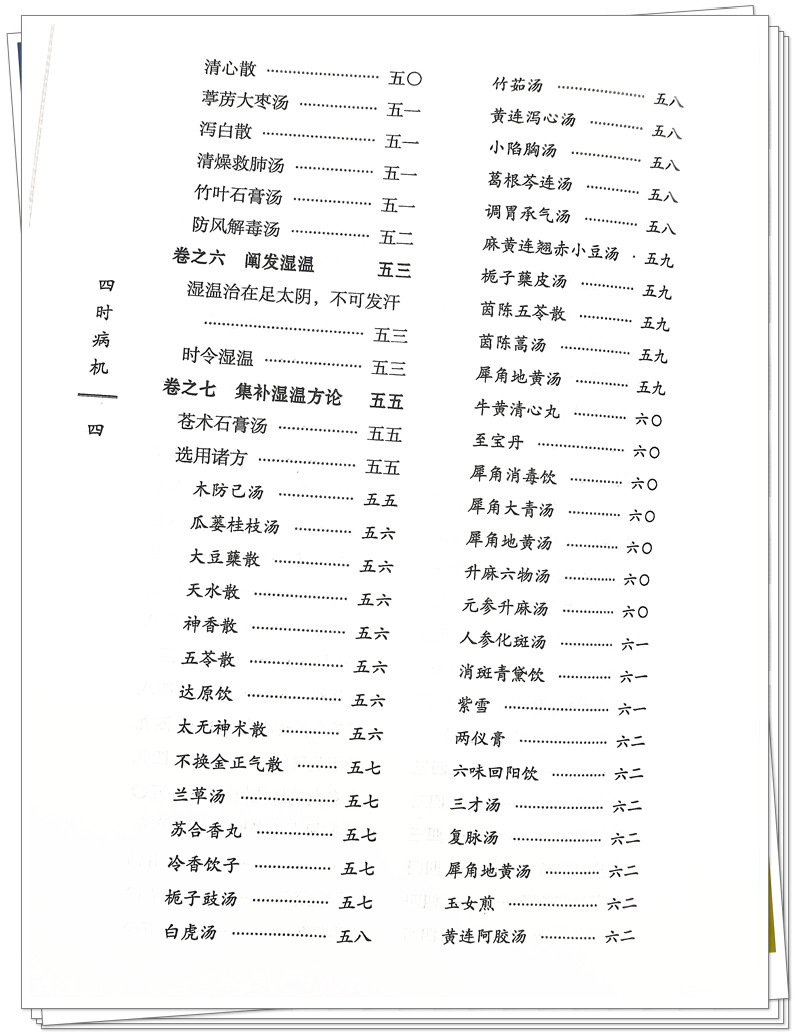 清心散 …… 五〇
葶苈大枣汤 …… 五一
泻白散 …… 五一
清燥救肺汤 …… 五一
竹叶石膏汤 …… 五一
防风解毒汤 …… 五二
卷之六 阐发湿温 五三
湿温治在足太阴，不可发汗
…… 五三
时令湿温 …… 五三
卷之七 集补湿温方论 五五
苍术石膏汤 …… 五五
选用诸方 …… 五五
木防己汤 …… 五五
瓜蒌桂枝汤 …… 五六
大豆蘖散 …… 五六
天水散 …… 五六
神香散 …… 五六
五苓散 …… 五六
达原饮 …… 五六
太无神术散 …… 五六
不换金正气散 …… 五七
兰草汤 …… 五七
苏合香丸 …… 五七
冷香饮子 …… 五七
栀子豉汤 …… 五七
白虎汤 …… 五八
竹茹汤 …… 五八
黄连泻心汤 …… 五八
小陷胸汤 …… 五八
葛根芩连汤 …… 五八
调胃承气汤 …… 五八
麻黄连翘赤小豆汤 · 五九
栀子蘖皮汤 …… 五九
茵陈五苓散 …… 五九
茵陈蒿汤 …… 五九
犀角地黄汤 …… 五九
牛黄清心丸 …… 六〇
至宝丹 …… 六〇
犀角消毒饮 …… 六〇
犀角大青汤 …… 六〇
犀角地黄汤 …… 六〇
升麻六物汤 …… 六〇
元参升麻汤 …… 六〇
人参化斑汤 …… 六一
消斑青黛饮 …… 六一
紫雪 …… 六一
两仪膏 …… 六二
六味回阳饮 …… 六二
三才汤 …… 六二
复脉汤 …… 六二
犀角地黄汤 …… 六二
玉女煎 …… 六二
黄连阿胶汤 …… 六二
四时病机
四